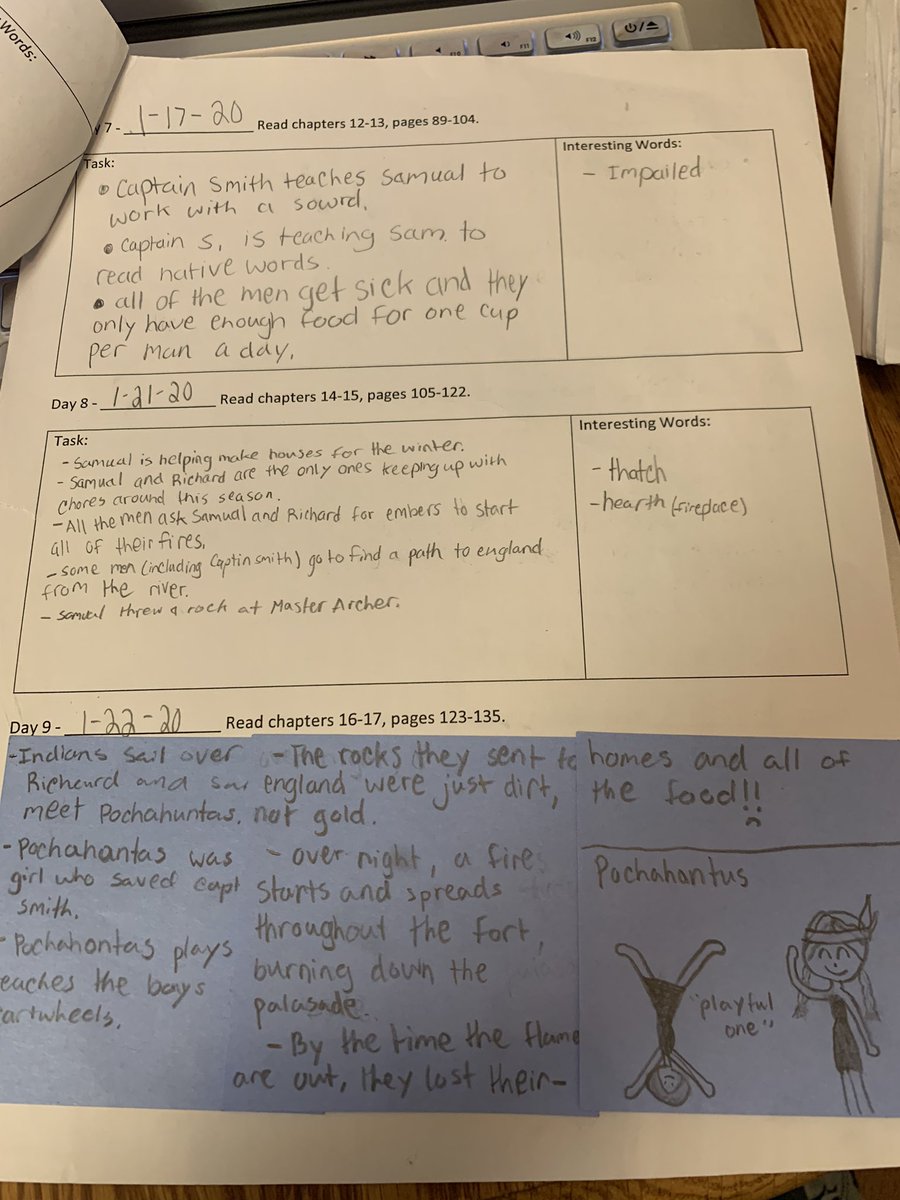 Words:
7 - 1-17-20 Read chapters 12-13, pages 89-104.
Task:
Captain Smith teaches Samual to
work with a sowrd.
Captain S, is teaching Sam. to
read native words.
all of the men get sick and they
only have enough food for one cup
per man a day.
Interesting Words:
- Impailed
Day 8 - 1-21-20 Read chapters 14-15, pages 105-122.
Task:
- Samual is helping make houses for the winter.
- Samual and Richard are the only ones keeping up with
chores around this season.
- All the men ask Samual and Richard for embers to start
all of their fires.
- Some men (including Captin smith) go to find a path to england
from the river.
- Samual threw a rock at Master Archer.
Interesting Words:
- thatch
- hearth (fireplace)
Day 9 - 1-22-20 Read chapters 16-17, pages 123-135.
- Indians sail over
Richeurd and
meet Pochahuntas.
- Pochahantas was
girl who saved capt
smith.
- Pochahontas plays
eaches the boys
artwheels.
- The rocks they sent to
england were just dirt,
not gold.
- over night, a fire
starts and spreads
throughout the fort,
burning down the
palasade.
- By the time the flame
are out, they lost their-
homes and all of
the food!!
Pochahontus
"playful
one"
F10
F11
F12